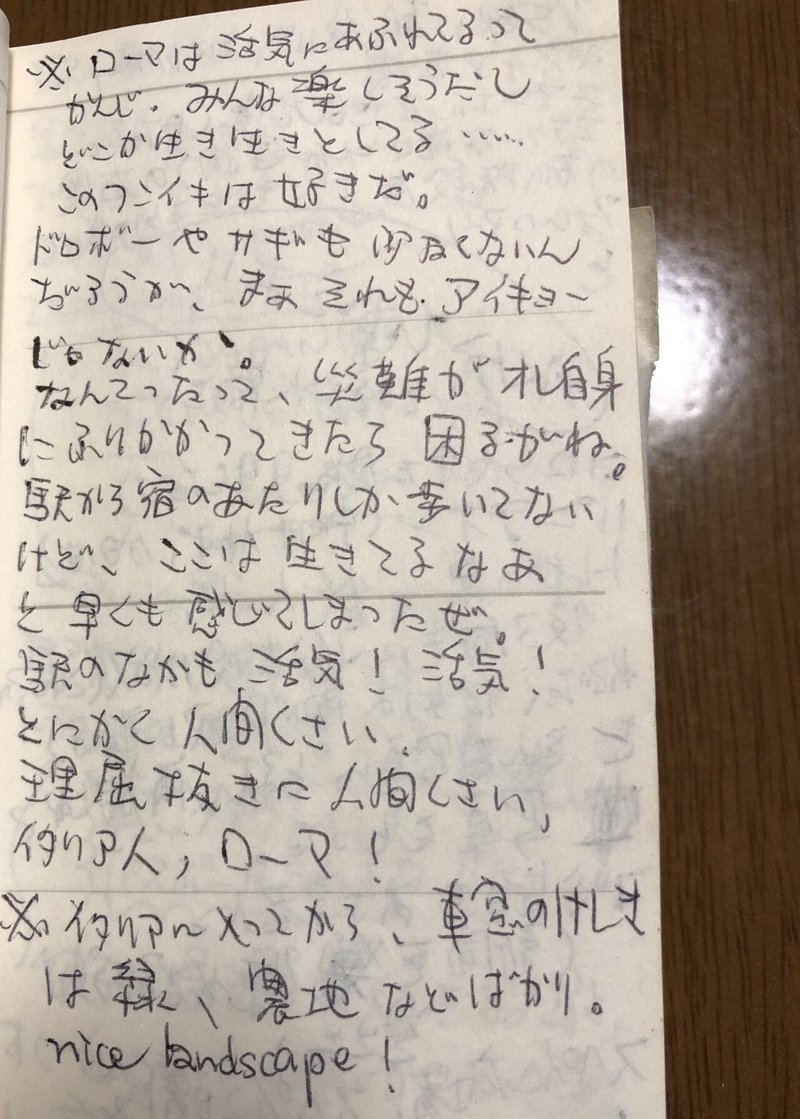 ※ ローマは活気にあふれてるって
かんじ。みんな楽しそうだし
どこか生き生きとしてる……
このフンイキは好きだ。
ドロボーやサギも少なくないん
だろうが、まあそれもアイキョー
じゃないか。
なんてったって、災難がオレ自身
にふりかかってきたら困るがね。
駅から宿のあたりしか歩いてない
けど、ここは生きてるなあ
と早くも感じてしまったぜ。
駅のなかも活気！活気！
とにかく人間くさい、
理屈抜きに人間くさい、
イタリア人，ローマ！
※ イタリアに入ってから、車窓のけしき
は緑、農地などばかり。
nice landscape！